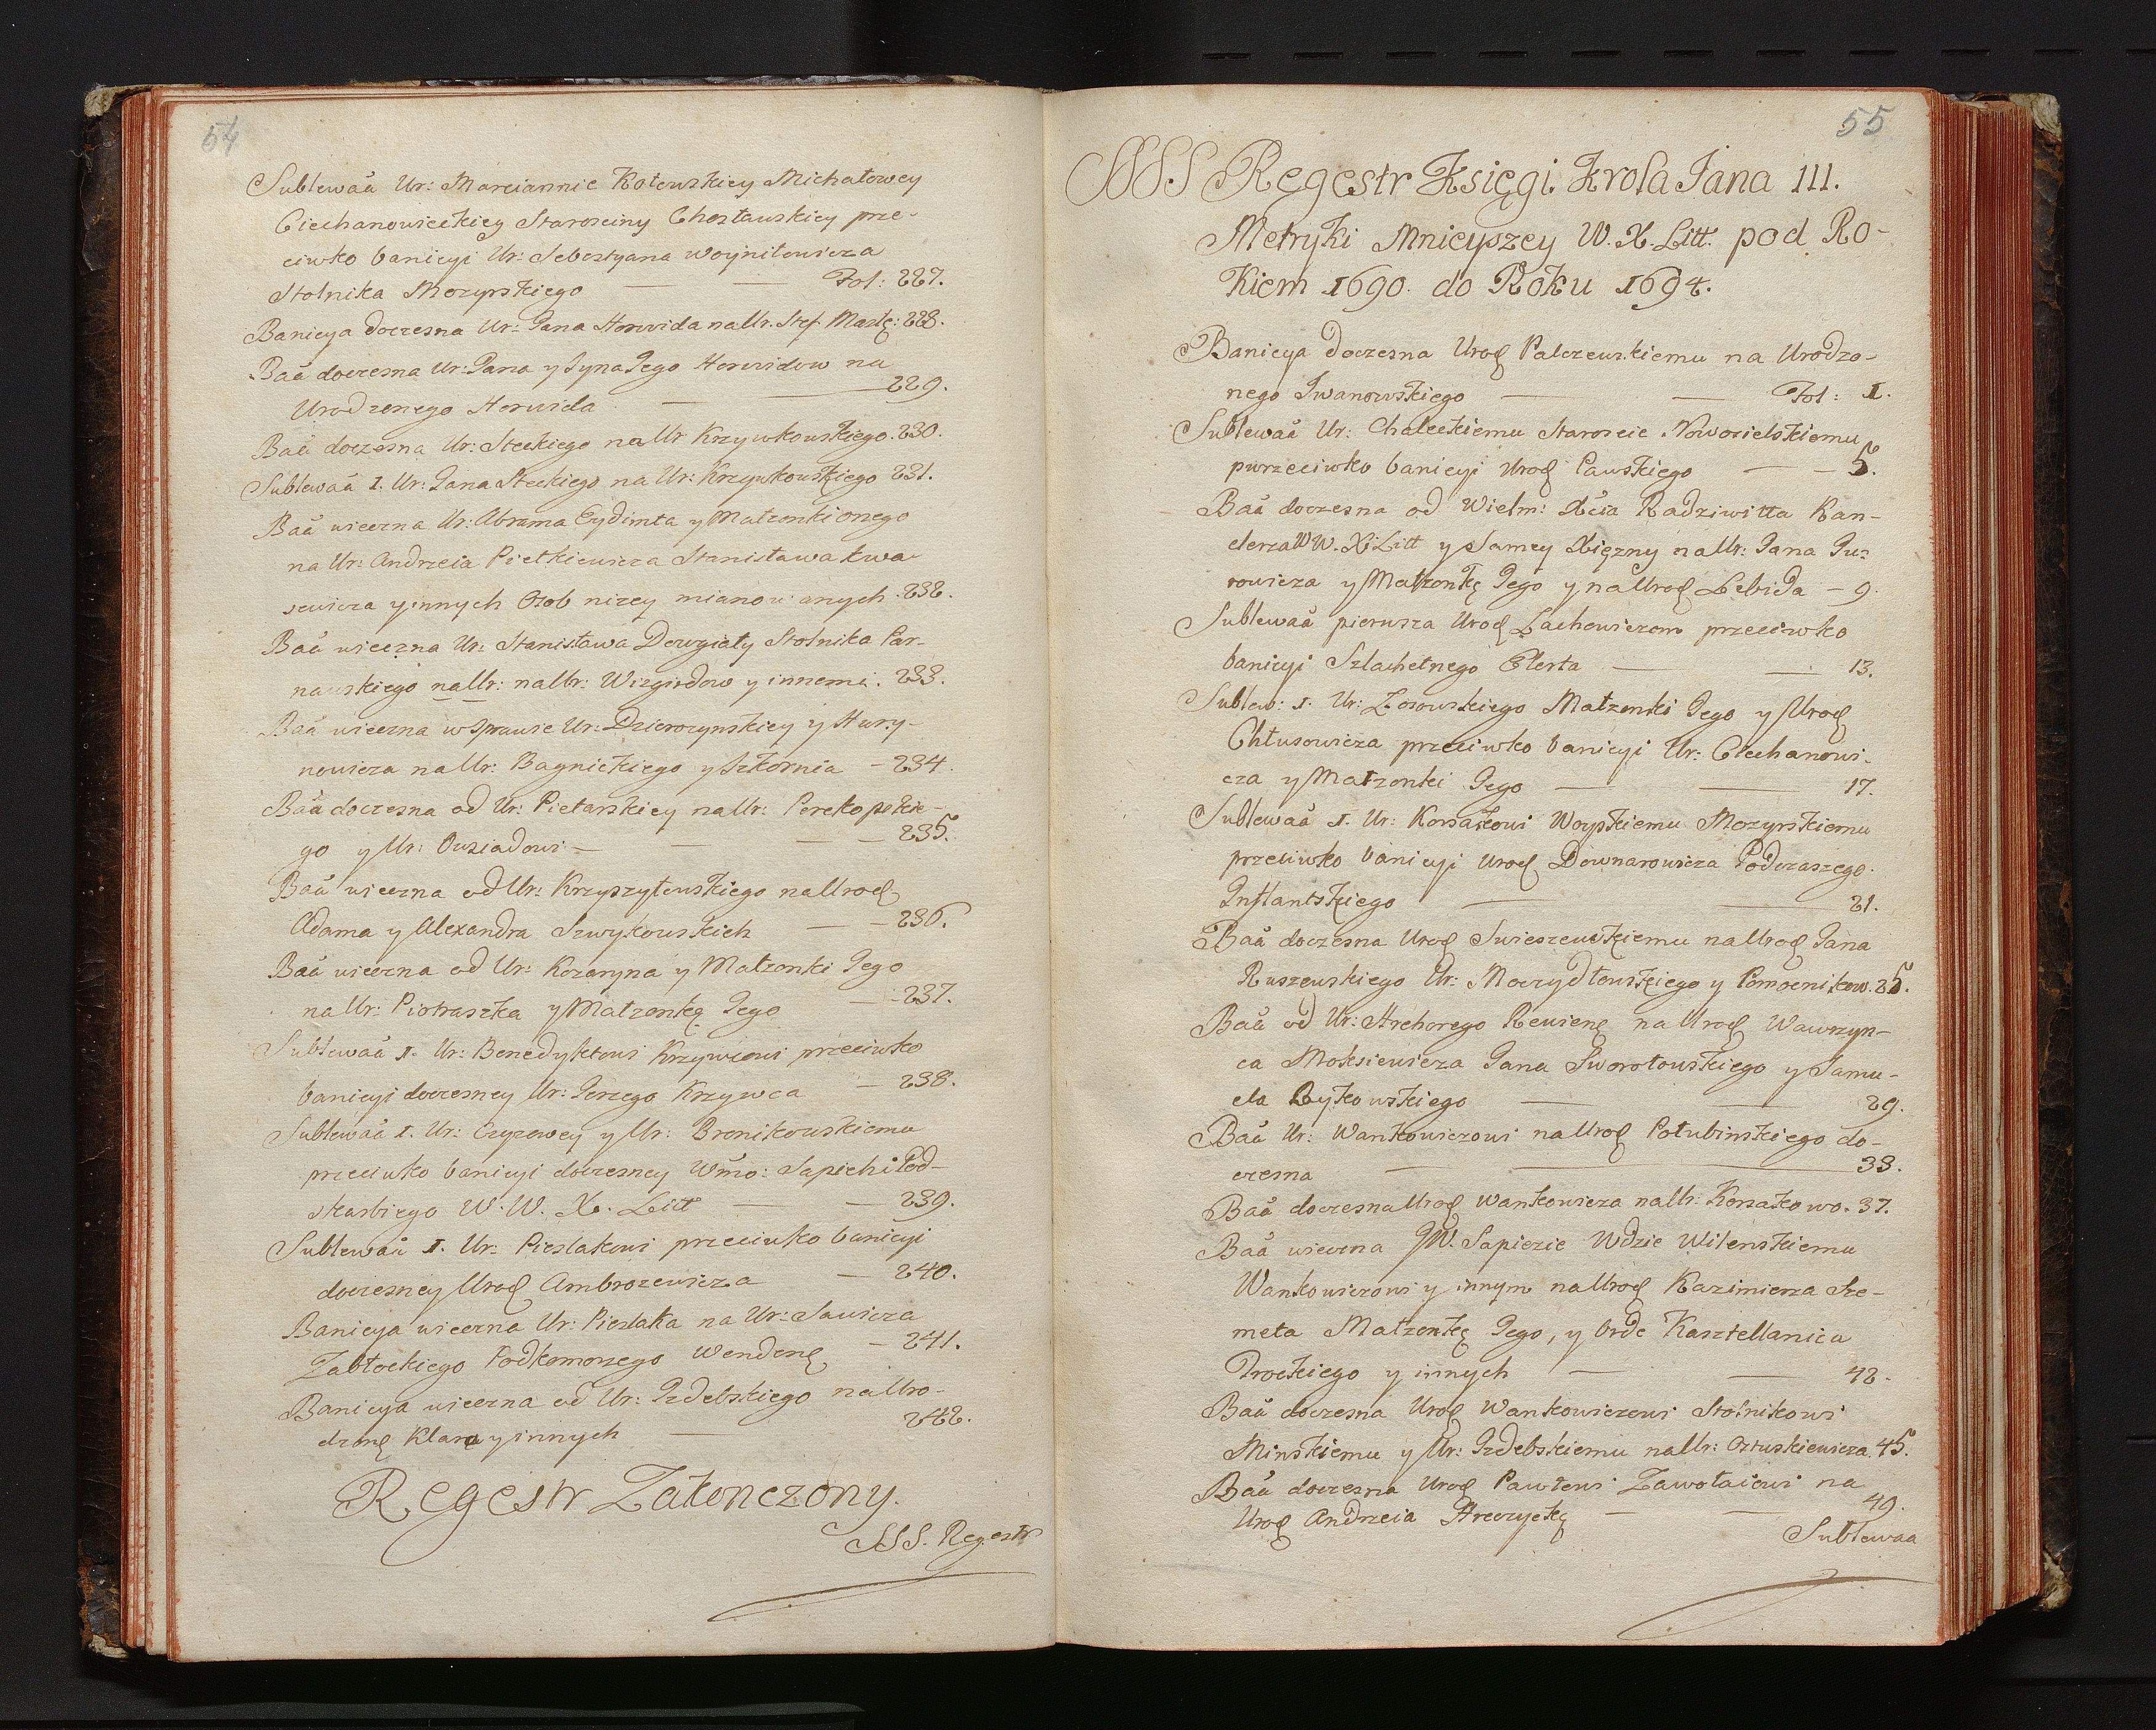 54
Sublewaã Ur: Marciannie Kotowskiey Michałowey
Ciechanowieckiey Starosciny Chosławskiey prze-
ciwko banicyi Ur: Sebestyana Woyniłowicza
Stolnika Mozyrskiego — — Fol: 227.
Banicya doczesna Ur: Jana Horwida na Ur. Stef. Mastę: 228.
Baã doczesna Ur: Jana y Syna Jego Horwidow na
Urodzonego Horwida — — 229.
Baã doczesna Ur: Steckiego na Ur Krzywkowskiego. 230.
Sublewaã 1. Ur: Jana Steckiego na Ur: Krzywkowskiego 231.
Baã wieczna Ur: Abrama Eydimta y Małzonki onego
na Ur: Andrzeia Pietkiewicza Stanisława Kwa-
sewicza y innych Osob nizey mianowanych. 232.
Baã wieczna Ur: Stanisława Dowgiały Stolnika Par-
nawskiego na Ur: na Ur: Wizgirdow y innemi. 233.
Baã wieczna w Sprawie Ur: Dzierozynskiey y Hury-
nowicza na Ur: Bagnickiego y Szkornia — 234.
Baã doczesna od Ur: Pietarskiey na Ur: Perekopskie-
go y Ur: Owsiadowi — — — 235.
Baã wieczna od Ur: Krzyszyłowskiego na Urod
Adama y Alexandra Szwykowskich — — 236.
Baã wieczna od Ur: Kozaryna y Małzonki Jego
na Ur: Piotraszka y Małzonkę Jego — 237.
Sublewaã 1. Ur: Benedyktowi Krzywcowi przeciwko
banicyi doczesney Ur: Jerzego Krzywca — 238.
Sublewaã 1. Ur: Czyzewey y Ur: Bronikowskiemu
przeciwko banicyi doczesney Wmo: Sapiehi Pod-
skarbiego W. W. X. Litt — — 239.
Sublewaã 1. Ur: Pieslakowi przeciwko banicyi
doczesney Urod Ambrozewicza — 240.
Banicya wieczna Ur: Pieslaka na Ur: Sawicza
Zabłockiego Podkomorzego Wendenę — 241.
Banicya wieczna od Ur: Izdebskiego na Uro-
dzonę Klarę y innych — 242.
Regestr Zakonczony.
SSS. Regestr
55
SSS Regestr Księgi Krola Jana III.
Metryki Mnieyszey W. X. Litt. pod Ro-
kiem 1690. do Roku 1694.
Banicya doczesna Urod Palczewskiemu na Urodzo-
nego Iwanowskiego — — Fol: 1.
Sublewaã Ur: Chaleckiemu Staroscie Nowosielskiemu
pwrzeciwko banicyi Urod Pawskiego — — 5.
Baã doczesna od Wielm: Xcia Radziwiłła Kan-
clerza WW. X. Litt y Samey Xięzny na Ur: Jana Ju-
rowicza y Małzonkę Jego y na Urod Lebida — 9.
Sublewaã pierwsza Urod Lachowiczom przeciwko
banicyi Szlachetnego Elerta — — 13.
Sublew: 1. Ur: Zosowskiego Małzonki Jego y Urod
Chłusowicza przeciwko banicyi Ur: Ciechanowi-
cza y Małzonki Jego — — 17.
Sublewaã 1. Ur: Korsakowi Woyskiemu Mozyrskiemu
przeciwko banicyi Urod Downarowicza Podczaszego
Inflantskiego — — 21.
Baã doczesna Urod Swieszewskiemu na Urod Jana
Ruszewskiego Ur: Moczydłowskiego y Pomocnikow. 25.
Baã od Ur: Hrehorego Rewienę na Urod Wawrzyn-
ca Moksiewicza Jana Sworotowskiego y Samu-
ela Bykowskiego — — 29.
Baã Ur: Wankowiczowi na Urod Połubinskiego do-
czesna — — 33.
Baã doczesna Urod Wankowicza na Ur: Korsakowo. 37.
Baã wieczna JW. Sapiezie Wdzie Wilenskiemu
Wankowiczowi y innym na Urod Kazimierza Sze-
meta Małzonkę Jego, y Urde Kasztellanica
Trockiego y innych — — 42.
Baã doczesna Urod Wankowiczowi Stolnikowi
Minskiemu y Ur: Izdebskiemu na Ur: Oztuskiewicza. 45.
Baã doczesna Urod Pawłowi Zawołaiowi na
Urod Andrzeia Hreczyckę — — 49.
Sublewaa